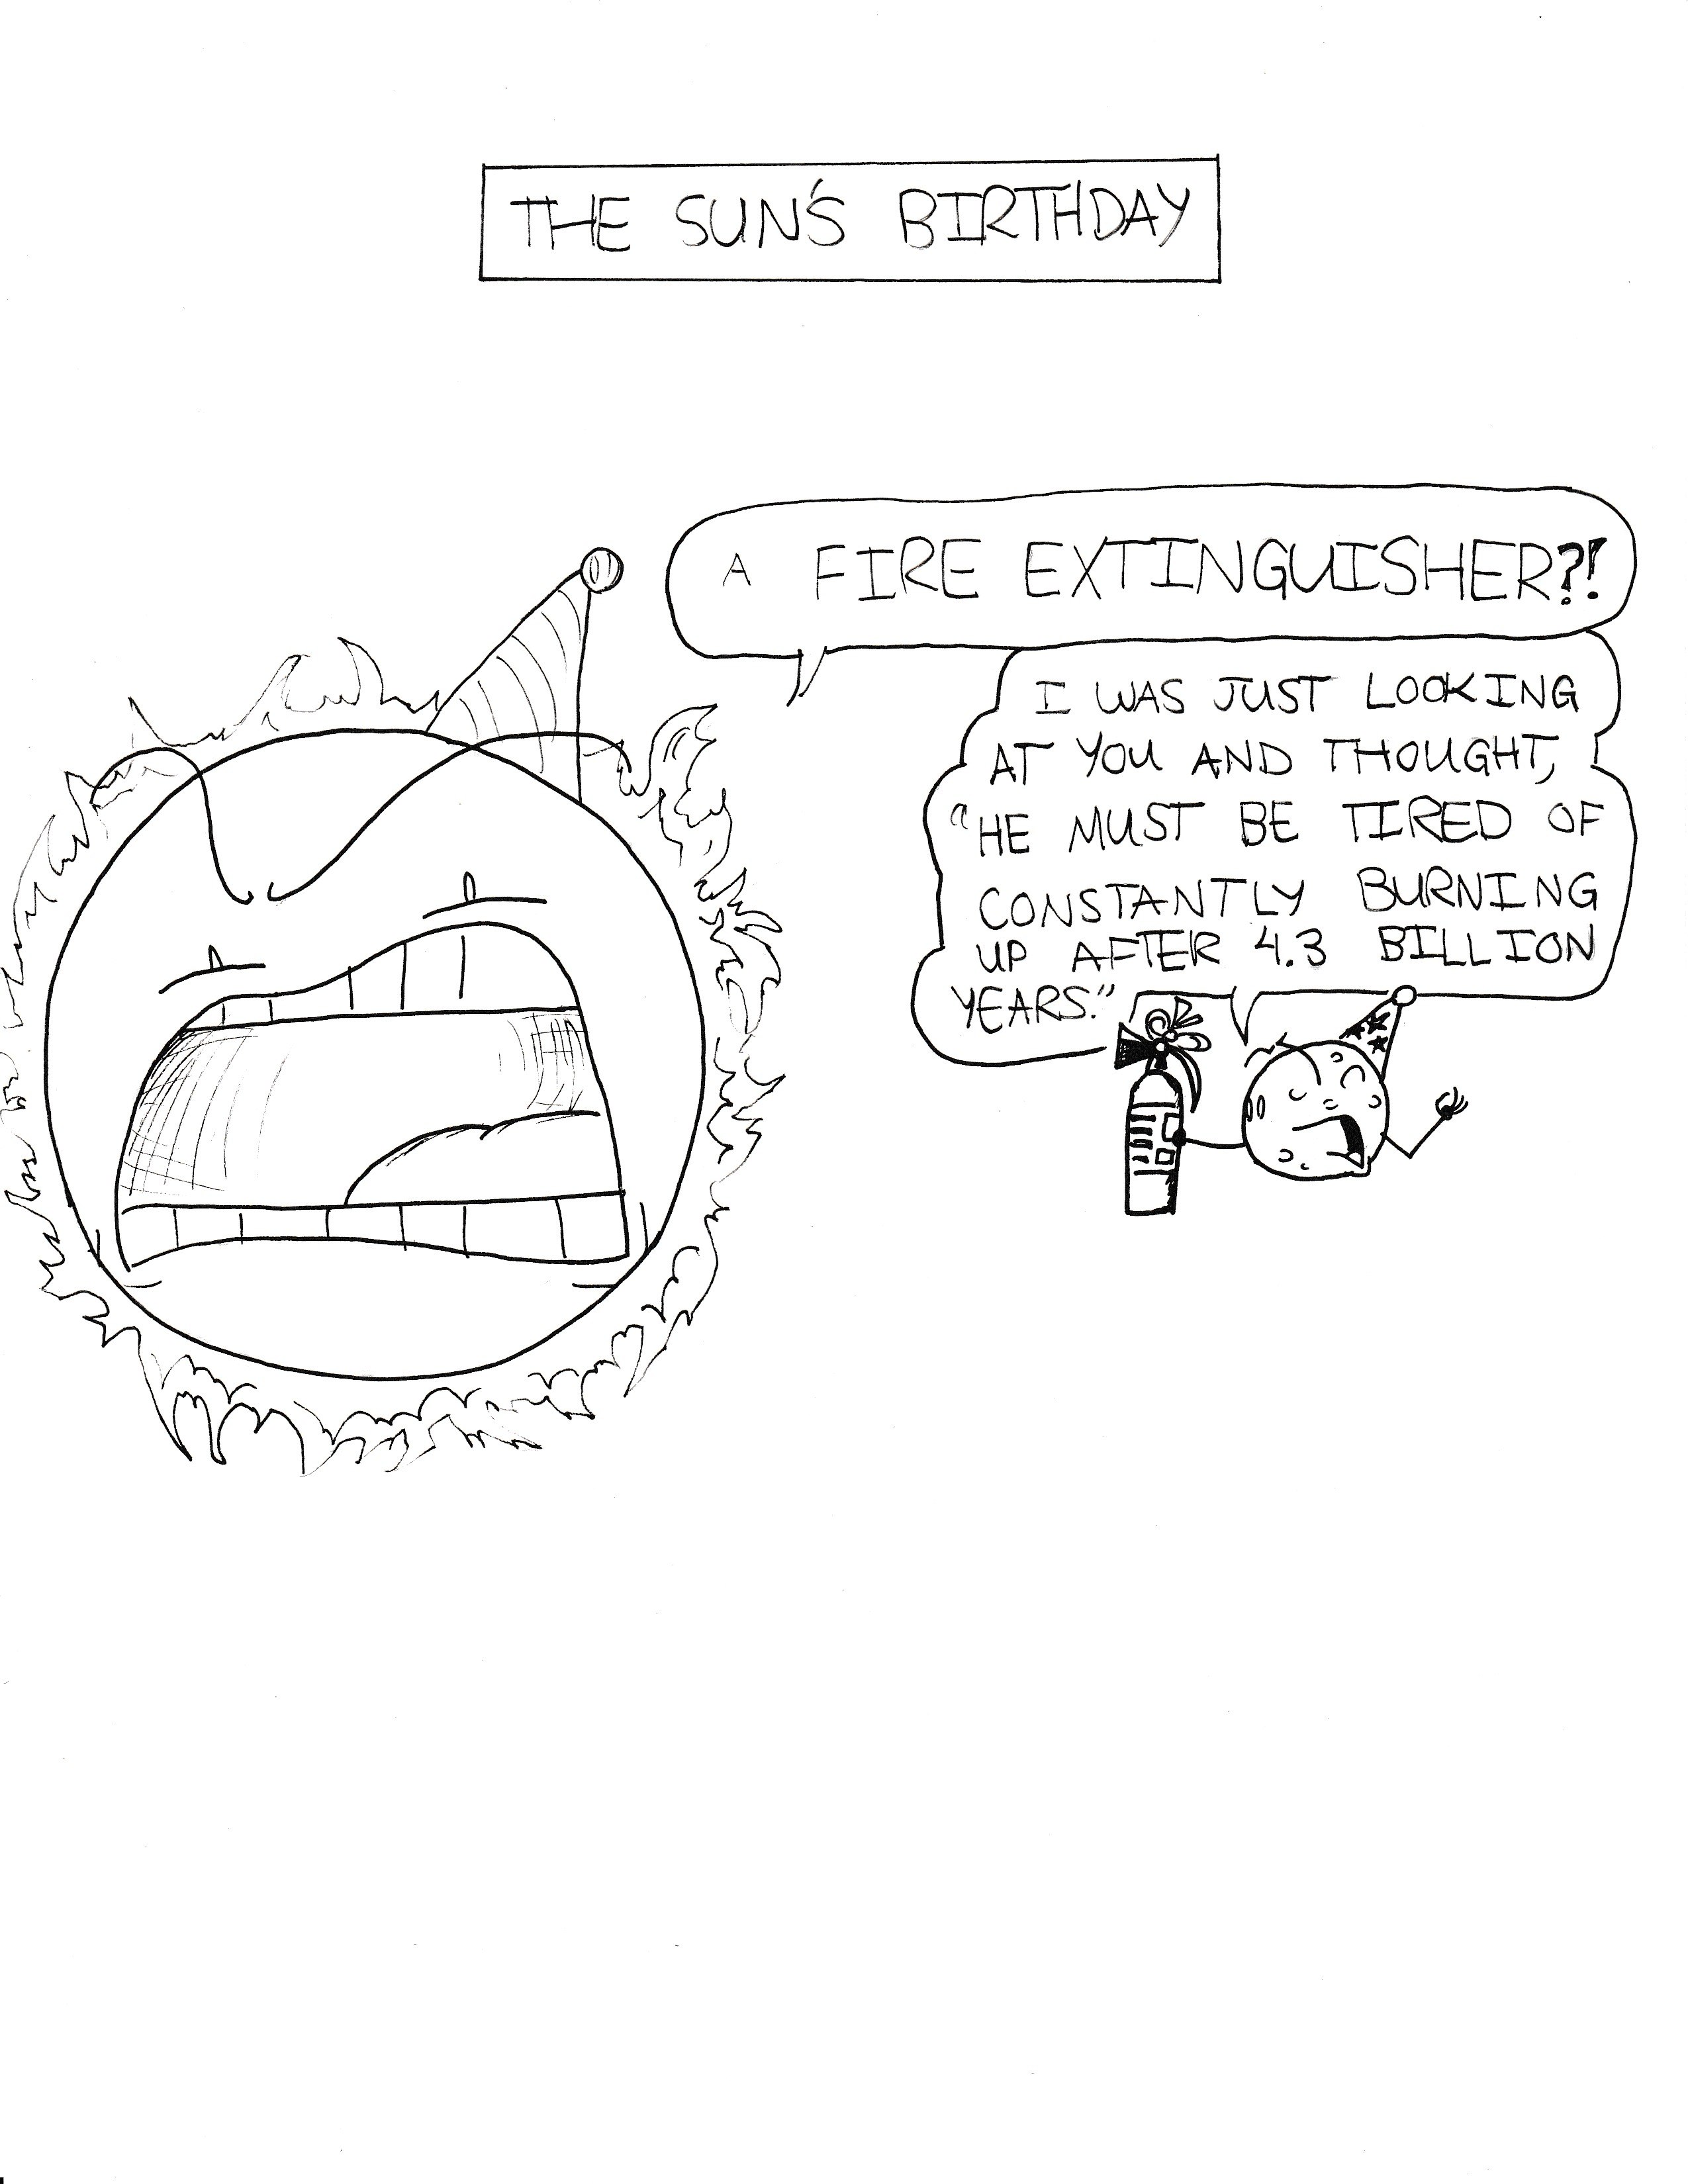 THE SUN'S BIRTHDAY
A FIRE EXTINGUISHER?!
I WAS JUST LOOKING
AT YOU AND THOUGHT,
"HE MUST BE TIRED OF
CONSTANTLY BURNING
UP AFTER 4.3 BILLION
YEARS."